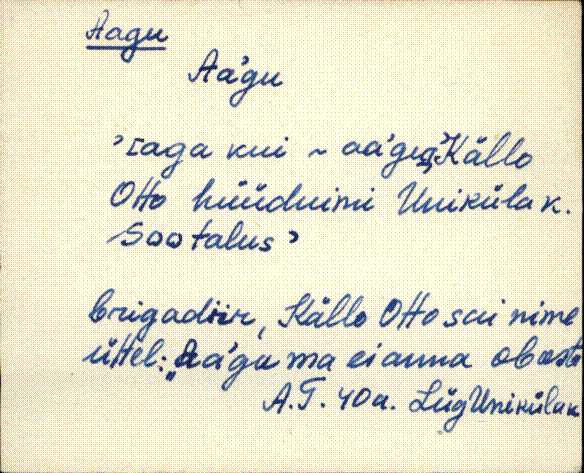 Aagu
Aa'gu
'[aga kui ~ aa'gu]' Källo
Otto hüüdnimi Uniküla k.
Sootalus'
brigadiir, Källo Otto sai nime
üttel: „Aa'gu ma ei anna obest
A.T. 40a. Lüg Uniküla k